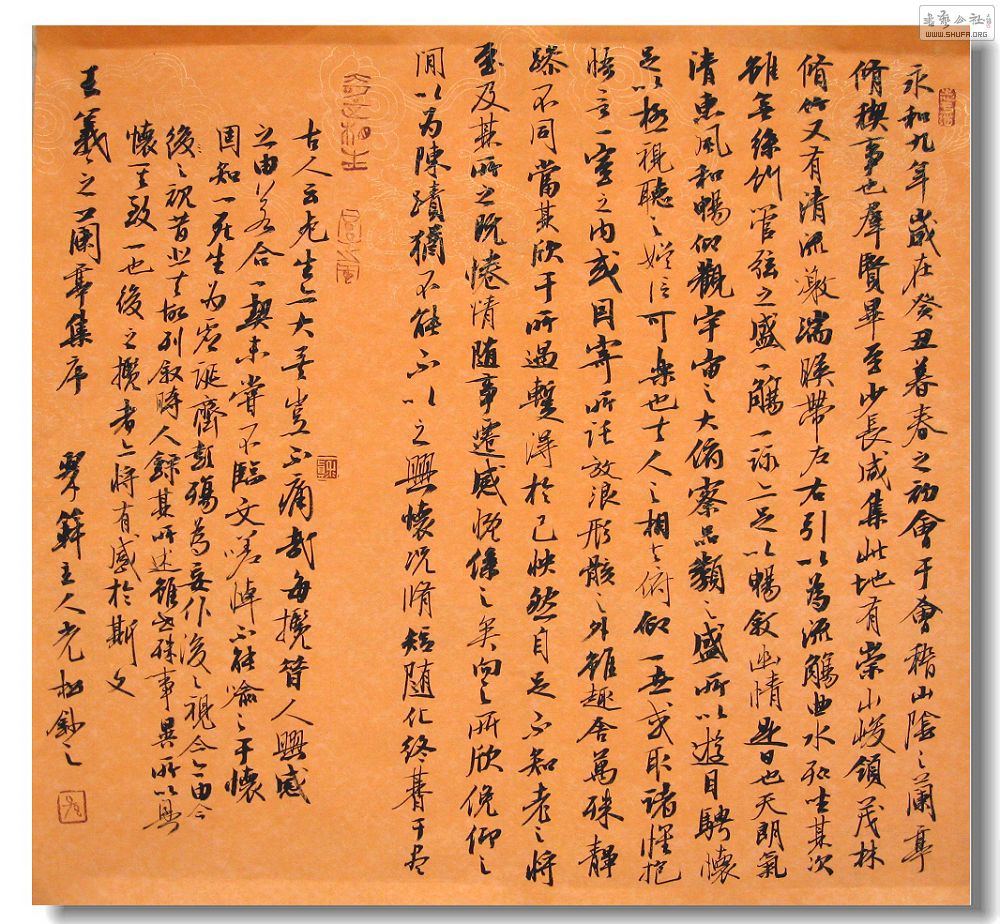 永和九年歲在癸丑暮春之初會于會稽山陰之蘭亭
脩稧事也羣賢畢至少長咸集此地有崇山峻領茂林
脩竹又有清流激湍暎帶左右引以為流觴曲水列坐其次
雖無絲竹管弦之盛一觴一詠亦足以暢敘幽情是日也天朗氣
清惠風和暢仰觀宇宙之大俯察品類之盛所以遊目騁懷
足以極視聽之娛信可樂也夫人之相與俯仰一世或取諸懷抱
悟言一室之內或因寄所託放浪形骸之外雖趣舍萬殊靜
躁不同當其欣于所遇暫得於己快然自足不知老之將
至及其所之既惓情隨事遷感慨係之矣向之所欣俛仰之
閒以為陳蹟猶不能不以之興懷況脩短隨化終期于盡
古人云死生亦大矣豈不痛哉每攬昔人興感
之由若合一契未嘗不臨文嗟悼不能喻之于懷
固知一死生為虛誕齊彭殤為妄作後之視今亦由今
後之視昔悲夫故列敘時人錄其所述雖世殊事異所以興
懷其致一也後之攬者亦將有感於斯文
王羲之蘭亭集序 主人光松鈔之
書藝公社
WWW.SHUFA.ORG